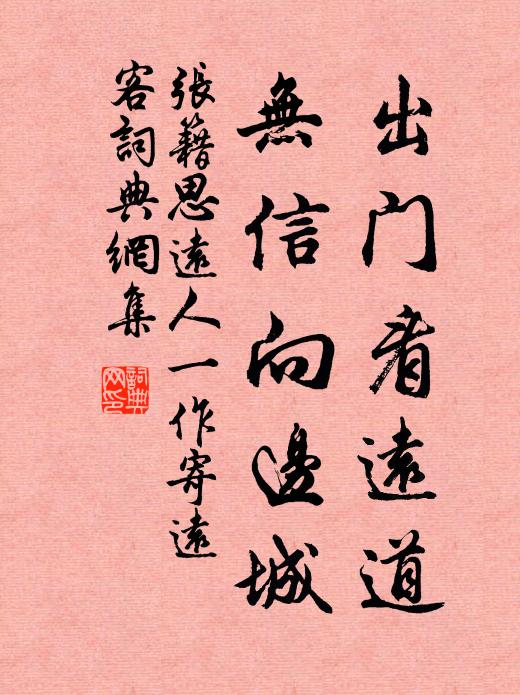 出门看遠道
無信向邊城
張籍思遠人一作寄遠
客詞典網集
詞典网印